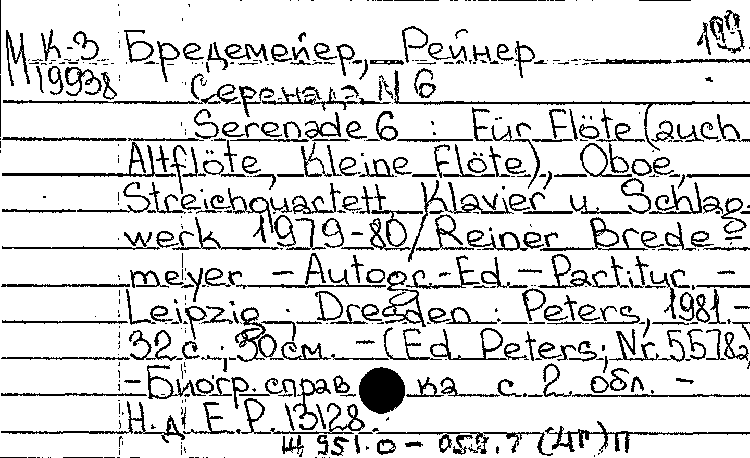 199
М К-3 Бредемейер, Рейнер
19938 Серенада N 6
Serenade 6 : Für Flöte (auch
Altflöte, Kleine Flöte), Oboe,
Streichquartett, Klavier u. Schlag-
werk 1979-80 / Reiner Brede-
meyer. - Autogr.-Ed. - Partitur. -
Leipzig ; Dresden : Peters, 1981. -
32 с. ; 30 см. - (Ed. Peters; Nr. 5578a)
- Биогр. справка с. 2. обл. -
Н. д. E.P. 13128.
Щ 951.0 - 059.7 (4Г) П